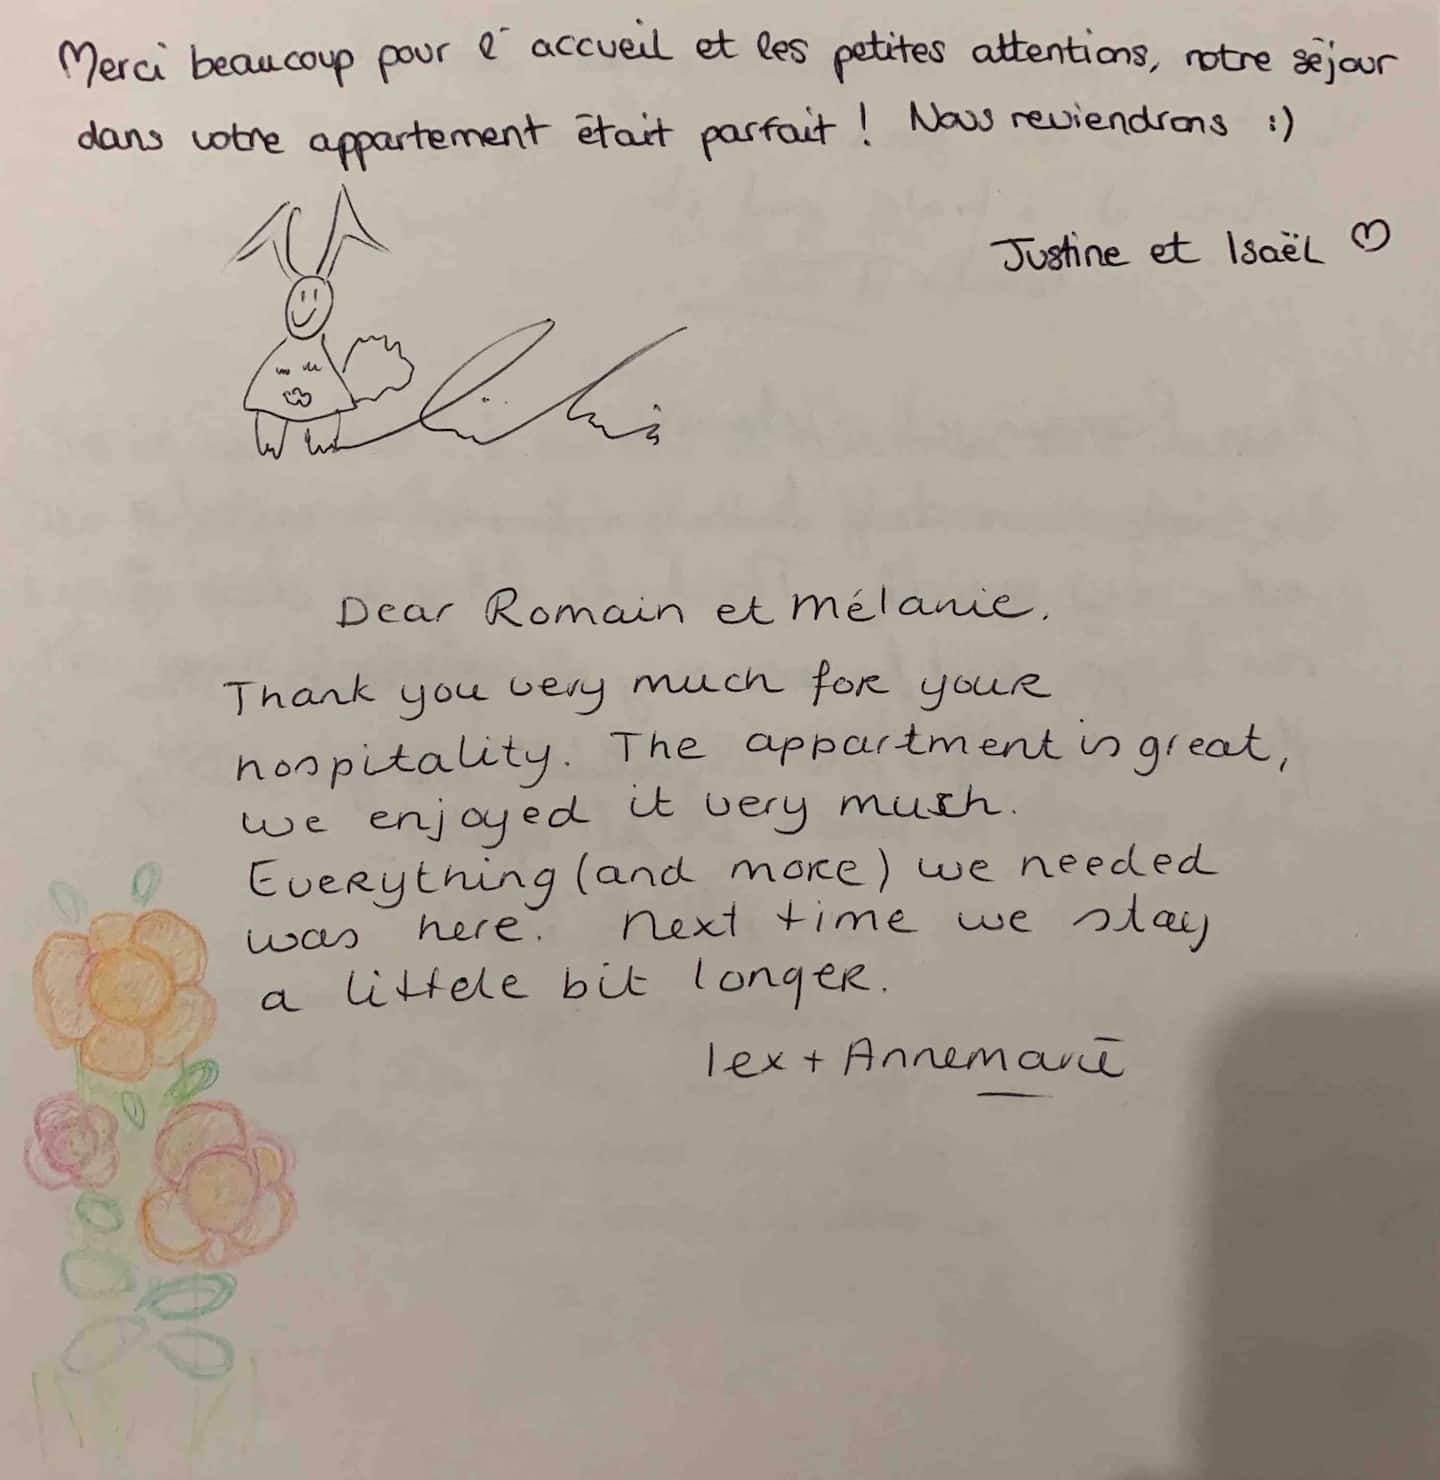 Merci beaucoup pour l'accueil et les petites attentions, notre séjour
dans votre appartement était parfait ! Nous reviendrons :)
Justine et Isaël ♡
Dear Romain et Mélanie.
Thank you very much for your
hospitality. The appartment is great,
we enjoyed it very much.
Everything (and more) we needed
was here. Next time we stay
a littele bit longer.
lex + Annemarie